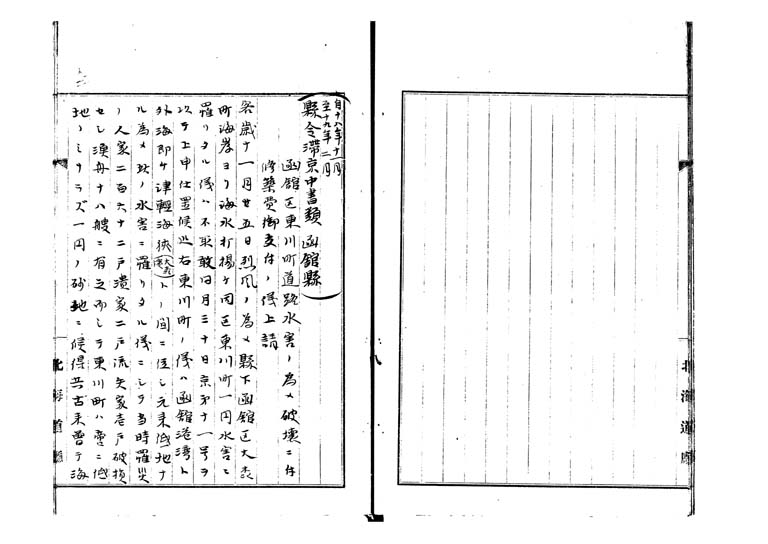 自十八年十一月
至十九年二月
縣令滞京中書類 函舘縣
函舘区東川町道路水害ノ為メ破壊ニ付
修築費御支付ノ儀上請
客歳十一月廿五日烈風ノ為メ縣下函舘区大森
町海岸ヨリ海水打揚ケ同区東川町一円水害ニ
罹リタル儀ハ不取敢同月三十日京第十一号ヲ
以テ上申仕置候処右東川町ノ儀ハ函舘港湾ト
外海即ケ津軽海狭(大森)トノ間ニ位シ元来低地ナ
ル為メ此ノ水害ニ罹リタル儀ニシテ当時罹災
ノ人家二百六十二戸潰家二戸流失家壱戸破損
セシ漁舟十八艘ニ有之而シテ東川町ハ啻ニ低
地ノミナラズ一円ノ砂地ニ候得共古来曽テ海
北海道廳
北海道廳